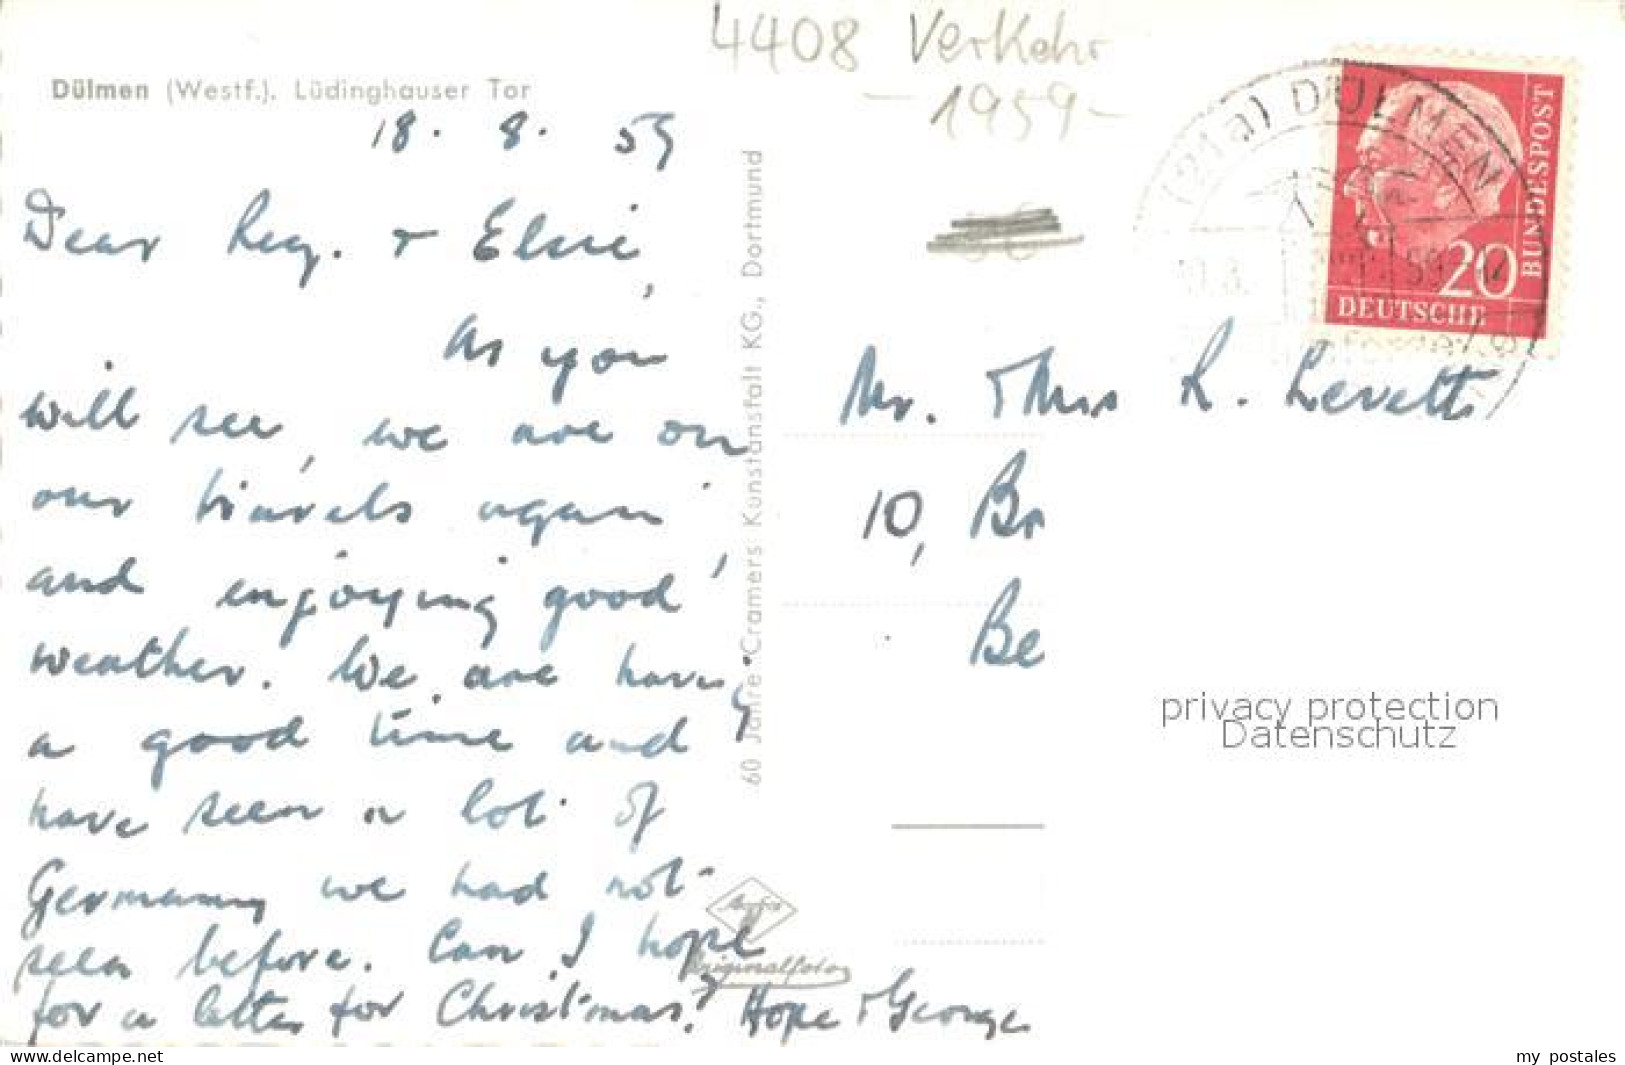 4408 Verkehr
- 1959 -
Dülmen (Westf.). Lüdinghauser Tor
18. 8. 59
Dear Reg. + Elsie,
As you
will see, we are on
our travels again
and enjoying good
weather. We are having
a good time and
have seen a lot of
Germany we had not
seen before. Can I hope
for a letter for Christmas? Hope + George
60 Jahre Cramers Kunstanstalt KG., Dortmund
Originalfoto
(21a) DÜLMEN
59
20
DEUTSCHE
BUNDESPOST
Mr. + Mrs R. Levett
10, Br
Be
privacy protection
Datenschutz
delcampe.net
my postales